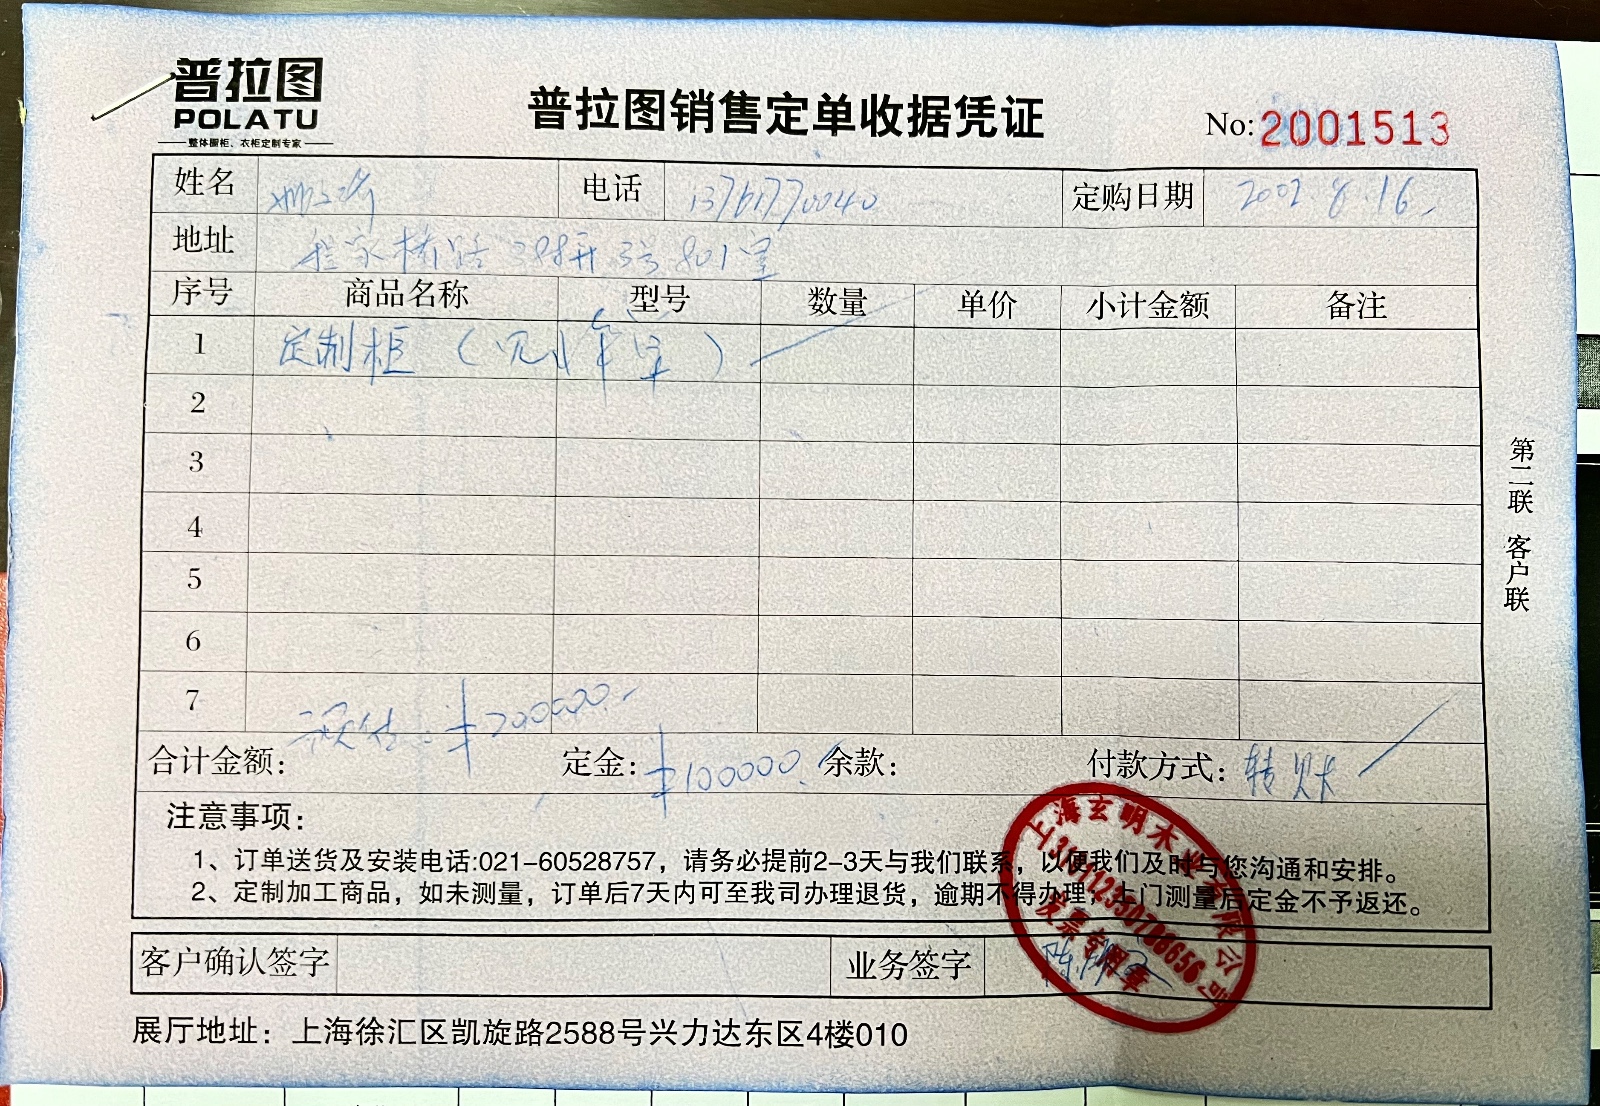 普拉图
POLATU
整体橱柜、衣柜定制专家
普拉图销售定单收据凭证
No:2001513
姓名 电话 13761770040 定购日期 2002.8.16.
地址 程家桥路398弄3号801室
序号 商品名称 型号 数量 单价 小计金额 备注
1 定制柜
2
3
4
5
6
7
合计金额: 预估:¥200000.- 定金:¥100000. 余款: 付款方式:转账
注意事项:
1、订单送货及安装电话:021-60528757,请务必提前2-3天与我们联系,以便我们及时与您沟通和安排。
2、定制加工商品,如未测量,订单后7天内可至我司办理退货,逾期不得办理,上门测量后定金不予返还。
客户确认签字 业务签字
上海玄明木业有限公司
发票专用章
展厅地址:上海徐汇区凯旋路2588号兴力达东区4楼010
第二联 客户联